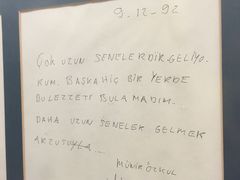 9-12-92
ÇOK UZUN SENELERDİR GELİYO-
RUM. BAŞKA HİÇ BİR YERDE
BU LEZZETİ BULAMADIM.
DAHA UZUN SENELER GELMEK
ARZUSUYLA...
MÜNİR ÖZKUL